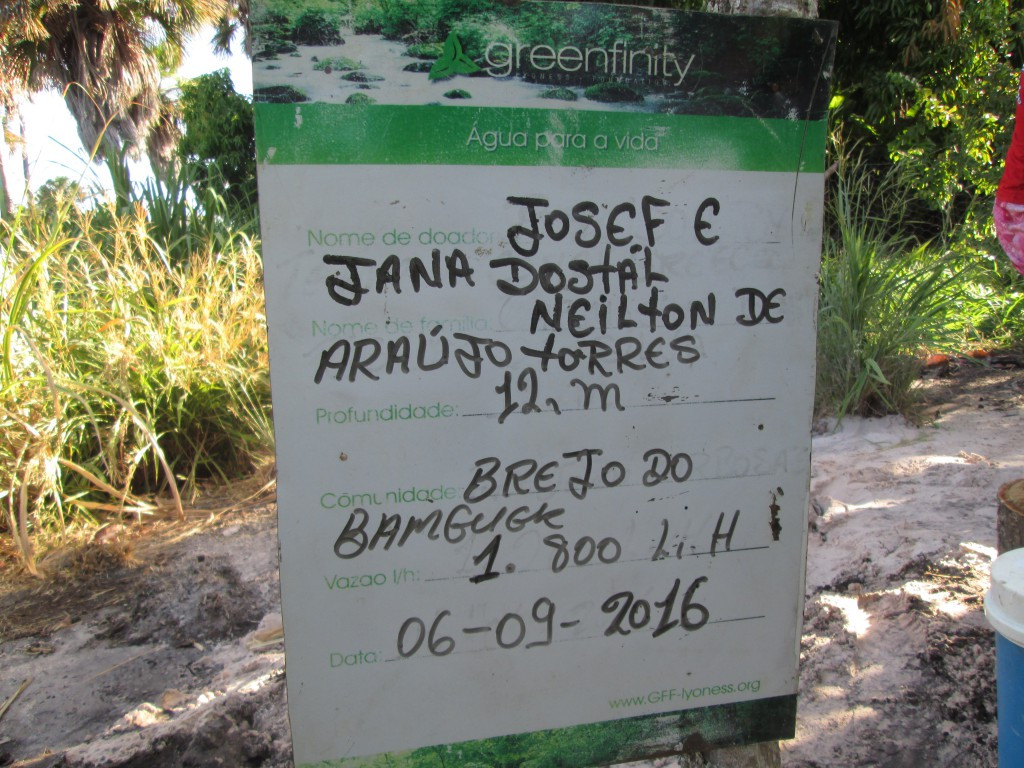 greenfinity
Água para a vida
Nome de doador: JOSEF E
JANA DOSTAL
Nome de família: NEILTON DE
ARAÚJO TORRES
Profundidade: 12, m
Comunidade: BREJO DO
Vazao l/h: 1. 800 Li. H
Data: 06-09-2016
www.GFF-lyoness.org